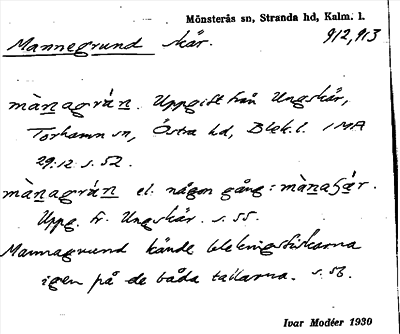 Mönsterås sn, Stranda hd, Kalm. l.
Mannegrund skär. 912,913
mànagrán. Uppgift från Ungskär,
Torhamn sn, Östra hd, Blek. l. IMA
29:12 s. 52.
mànagrán el. någon gång: mànasǽr.
Uppg. fr. Ungskär. s. 55.
Mannagrund kände blekingsfiskarna
igen på de båda tallarna. s. 56.
Ivar Modéer 1930